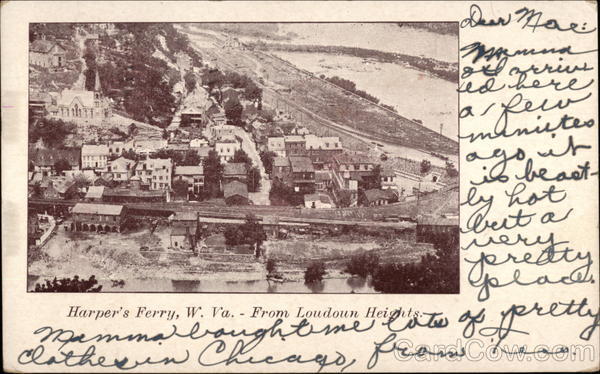 Dear Mae:
Mamma
and I arriv
ed here
a few
minutes
ago it
is beast-
ly hot
but a
very
pretty
place.
Harper's Ferry, W. Va. - From Loudoun Heights.
Mamma bought me lots of pretty
clothes in Chicago, from
CardCow.com